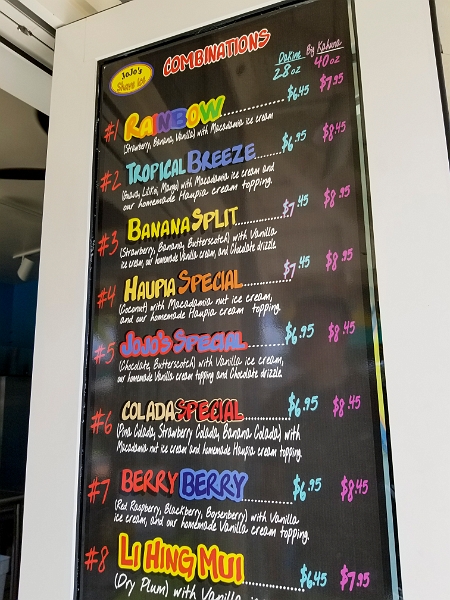 JoJo's
Shave Ice
COMBINATIONS
Dakine Big Kahuna
28 oz 40 oz
#1 RAINBOW $6.45 $7.95
(Strawberry, Banana, Vanilla) with Macadamia ice cream
#2 TROPICAL BREEZE $6.95 $8.45
(Guava, Lilikoi, Mango) with Macadamia ice cream and
our homemade Haupia cream topping.
#3 BANANA SPLIT $7.45 $8.95
(Strawberry, Banana, Butterscotch) with Vanilla
ice cream, our homemade Vanilla cream, and Chocolate drizzle
#4 HAUPIA SPECIAL $7.45 $8.95
(Coconut) with Macadamia nut ice cream,
and our homemade Haupia cream topping.
#5 JOJO'S SPECIAL $6.95 $8.45
(Chocolate, Butterscotch) with Vanilla ice cream,
our homemade Vanilla cream topping and Chocolate drizzle
#6 COLADA SPECIAL $6.95 $8.45
(Pina Colada, Strawberry Colada, Banana Colada) with
Macadamia nut ice cream and homemade Haupia cream topping.
#7 BERRY BERRY $6.95 $8.45
(Red Raspberry, Blackberry, Boysenberry) with Vanilla
ice cream, and our homemade Vanilla cream topping.
#8 LI HING MUI $6.45 $7.95
(Dry Plum) with Vanilla